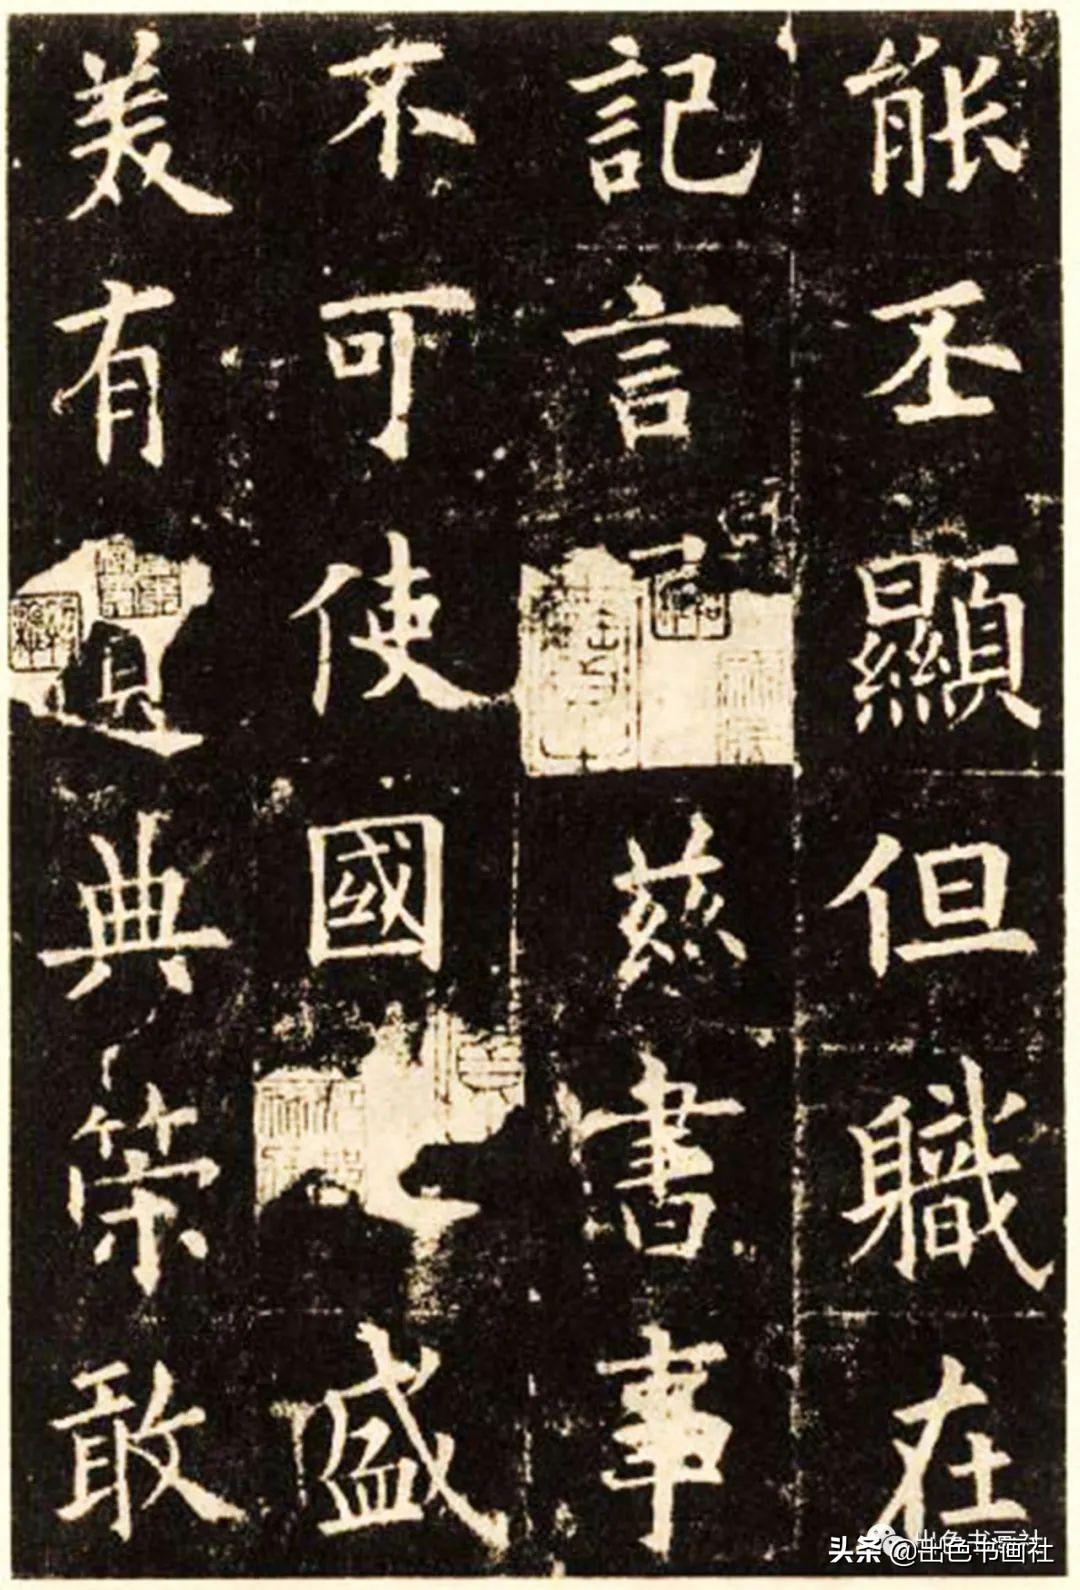 能丕顯但職在
記言茲書事
不可使國盛
美有遺典策敢
出色书画社
头条 @出色书画社